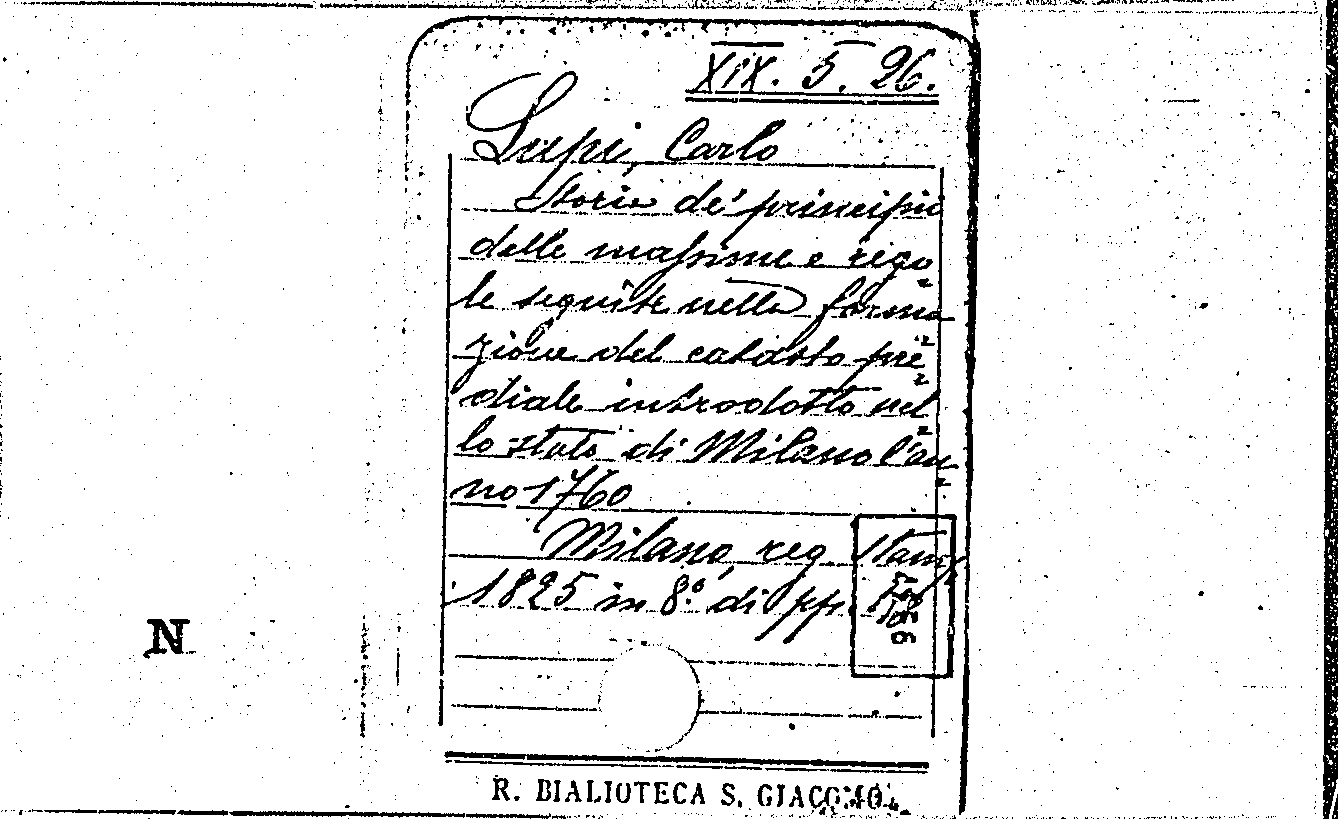 XIX. 5. 26.
Lupi, Carlo
Storia de' principii
delle massime e rego
le seguite nella forma
zione del catasto pre
diale introdotto nel
lo stato di Milano l'an
no 1760
Milano, reg. Stamp
1825 in 8.° di pp.
N
R. BIALIOTECA S. GIACOMO